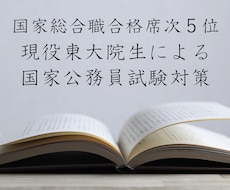 国家総合職合格席次５位
現役東大院生による
国家公務員試験対策